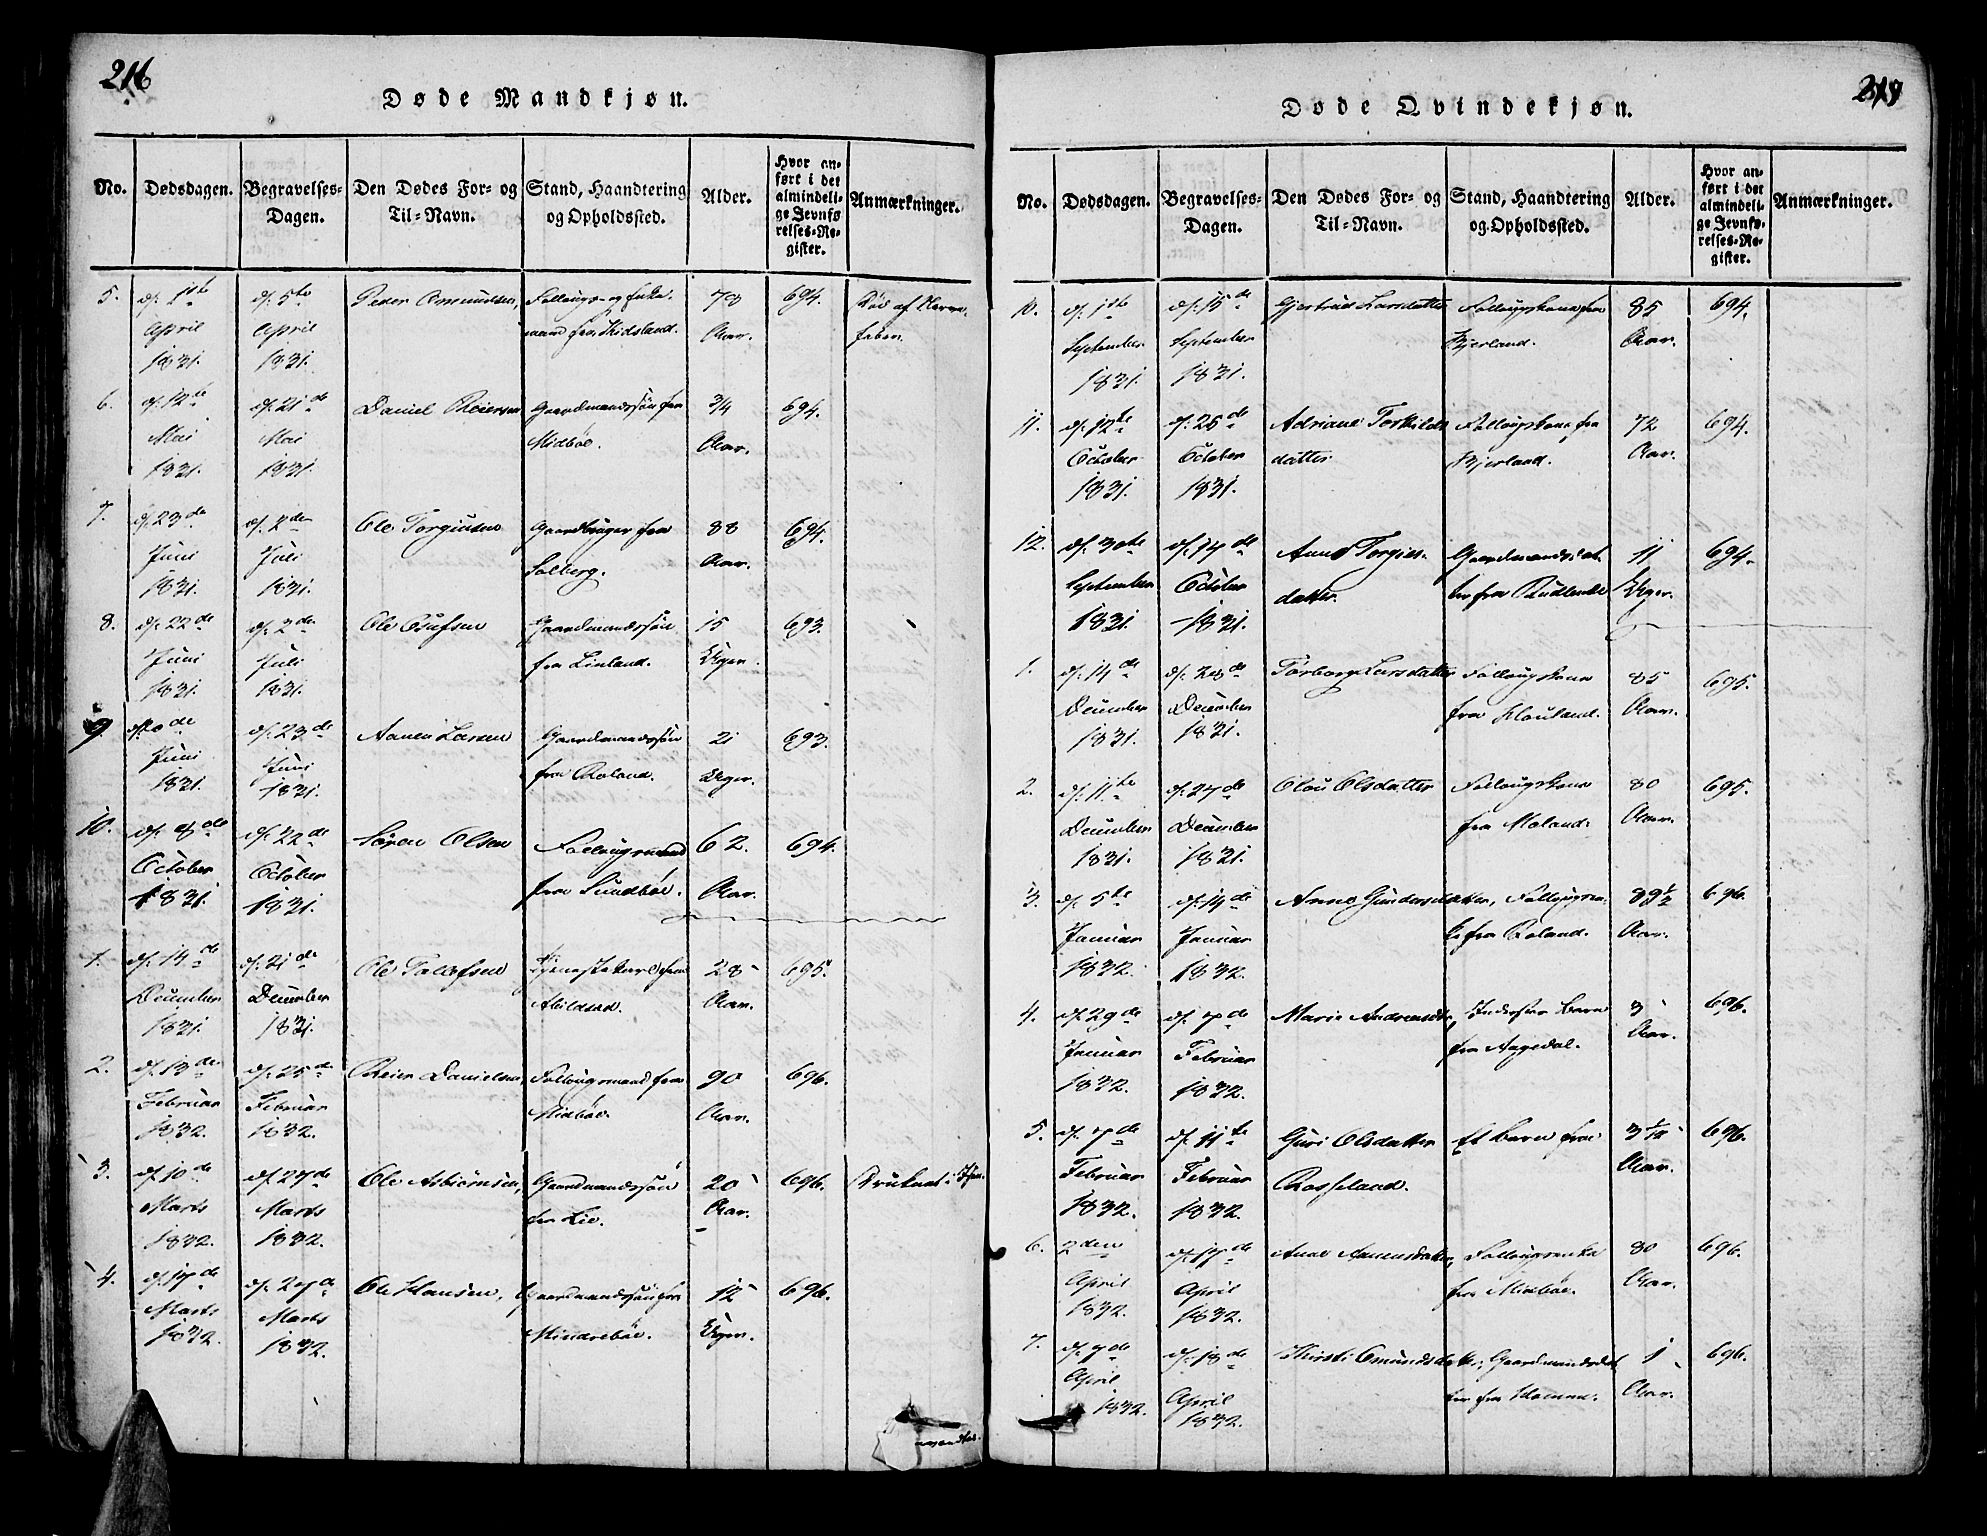 216
Døde Mandkjøn.
No.
Dødsdagen.
Begravelses-
Dagen.
Den Dødes For- og
Til-Navn.
Stand, Haandtering
og Opholdssted.
Alder.
Hvor an-
ført i det
almindeli-
ge Jevnfø
relses-Re-
gister.
Anmærkninger.
5. d. 1ste d. 5te Peder Omundsen, 73 694. Død af Nerve-
April April mand fra Kidsland. Aar. feber.
1831. 1831.
6. d. 12te d. 21de Daniel Reiersen Gaardmandssøn fra 3/4 694.
Mai Mai Midbøe. Aar.
1831. 1831.
7. d. 23de d. 2den Ole Torgiusen Gaardbruger fra 88 694.
Juni Juli Solberg. Aar.
1831. 1831.
8. d. 22de d. 2den Ole Gaardmandssøn 15 693.
Juni Juli fra Linland. Uger.
1831. 1831.
9 d. 23de Aanen Larsen Gaardmandssøn 21 693.
Juni Juni fra Roland. Uger.
1831. 1831.
10. d. 8de d. 22de Søren Olsen Follougsmand 62. 694.
October October fra Sundbøe. Aar.
1831. 1831.
1. d. 14de d. 21de Ole Tjenestekarl fra 28 695.
December December Abildsød. Aar.
1831. 1831.
2. d. 13de d. 25de Reier Danielsen, Follougsmand fra 90 696.
Februar Februar Midbøe. Aar.
1832. 1832.
3. d. 10de d. 27de Ole Asbiørnsen, Gaardmandssøn 20 696. Druknet i
Marts Marts fra Lie. Aar.
1832. 1832.
4. d. 17de d. 27de Ole Hansen, Gaardmandssøn fra 12 696.
Marts Marts Mindrebøe. Uger.
1832. 1832.
Døde Qvindekjøn.
No.
Dødsdagen.
Begravelses-
Dagen.
Den Dødes For- og
Til-Navn.
Stand, Haandtering
og Opholdssted.
Alder.
Hvor an-
ført i det
almindeli-
ge Jevnfø-
relses-Re-
gister.
Anmærkninger.
10. d. 1ste d. 15de Gjertrud Larsdatter Follougskone fra 85 694.
September September Bjerland. Aar.
1831. 1831.
11. d. 12te d. 26de Adriane Torkilds Follougskone fra 72 694.
October October datter Bjerland. Aar.
1831. 1831.
12. d. 30te d. 14de Anne Torgius- Gaardmandsdat 11 694.
September October datter. ter fra Uger.
1831. 1831.
1. d. 14de d. 28de Torborg Larsdatter Follougskone 85 695.
December December fra Houland. Aar.
1831. 1831.
2. d. 11te d. 27de Olou Olsdatter Follougskone 80 695.
December December fra Moland. Aar.
1831. 1831.
3. d. 5te d. 14de Anne Gundersdatter, Follougsen- 89½ 696.
Januar Januar ke fra Roland. Aar.
1832. 1832.
4. d. 29de d. 7de Marie Inderster Barn 3 696.
Januar Februar fra Aagedal. Aar.
1832. 1832.
5. d. 7de d. 11te Guri Olsdatter Et Barn fra 696.
Februar Februar Rosseland. Aar.
1832. 1832.
6. 2den d. 17de Ane Aanensdatter, Follougsenke 80 696.
April April fra Midbøe. Aar.
1832. 1832.
7. d. 7de d. 18de Kirsti Omundsdatter, Gaardmandsdat 1 696.
April April ter fra Aar.
1832. 1832.